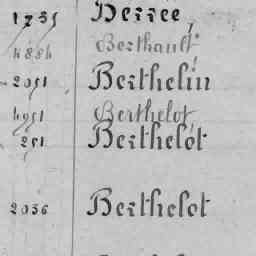 1735 Berree,
4884 Berthault
2051 Berthelin
4951 Berthelot
251 Berthelot
2036 Berthelot